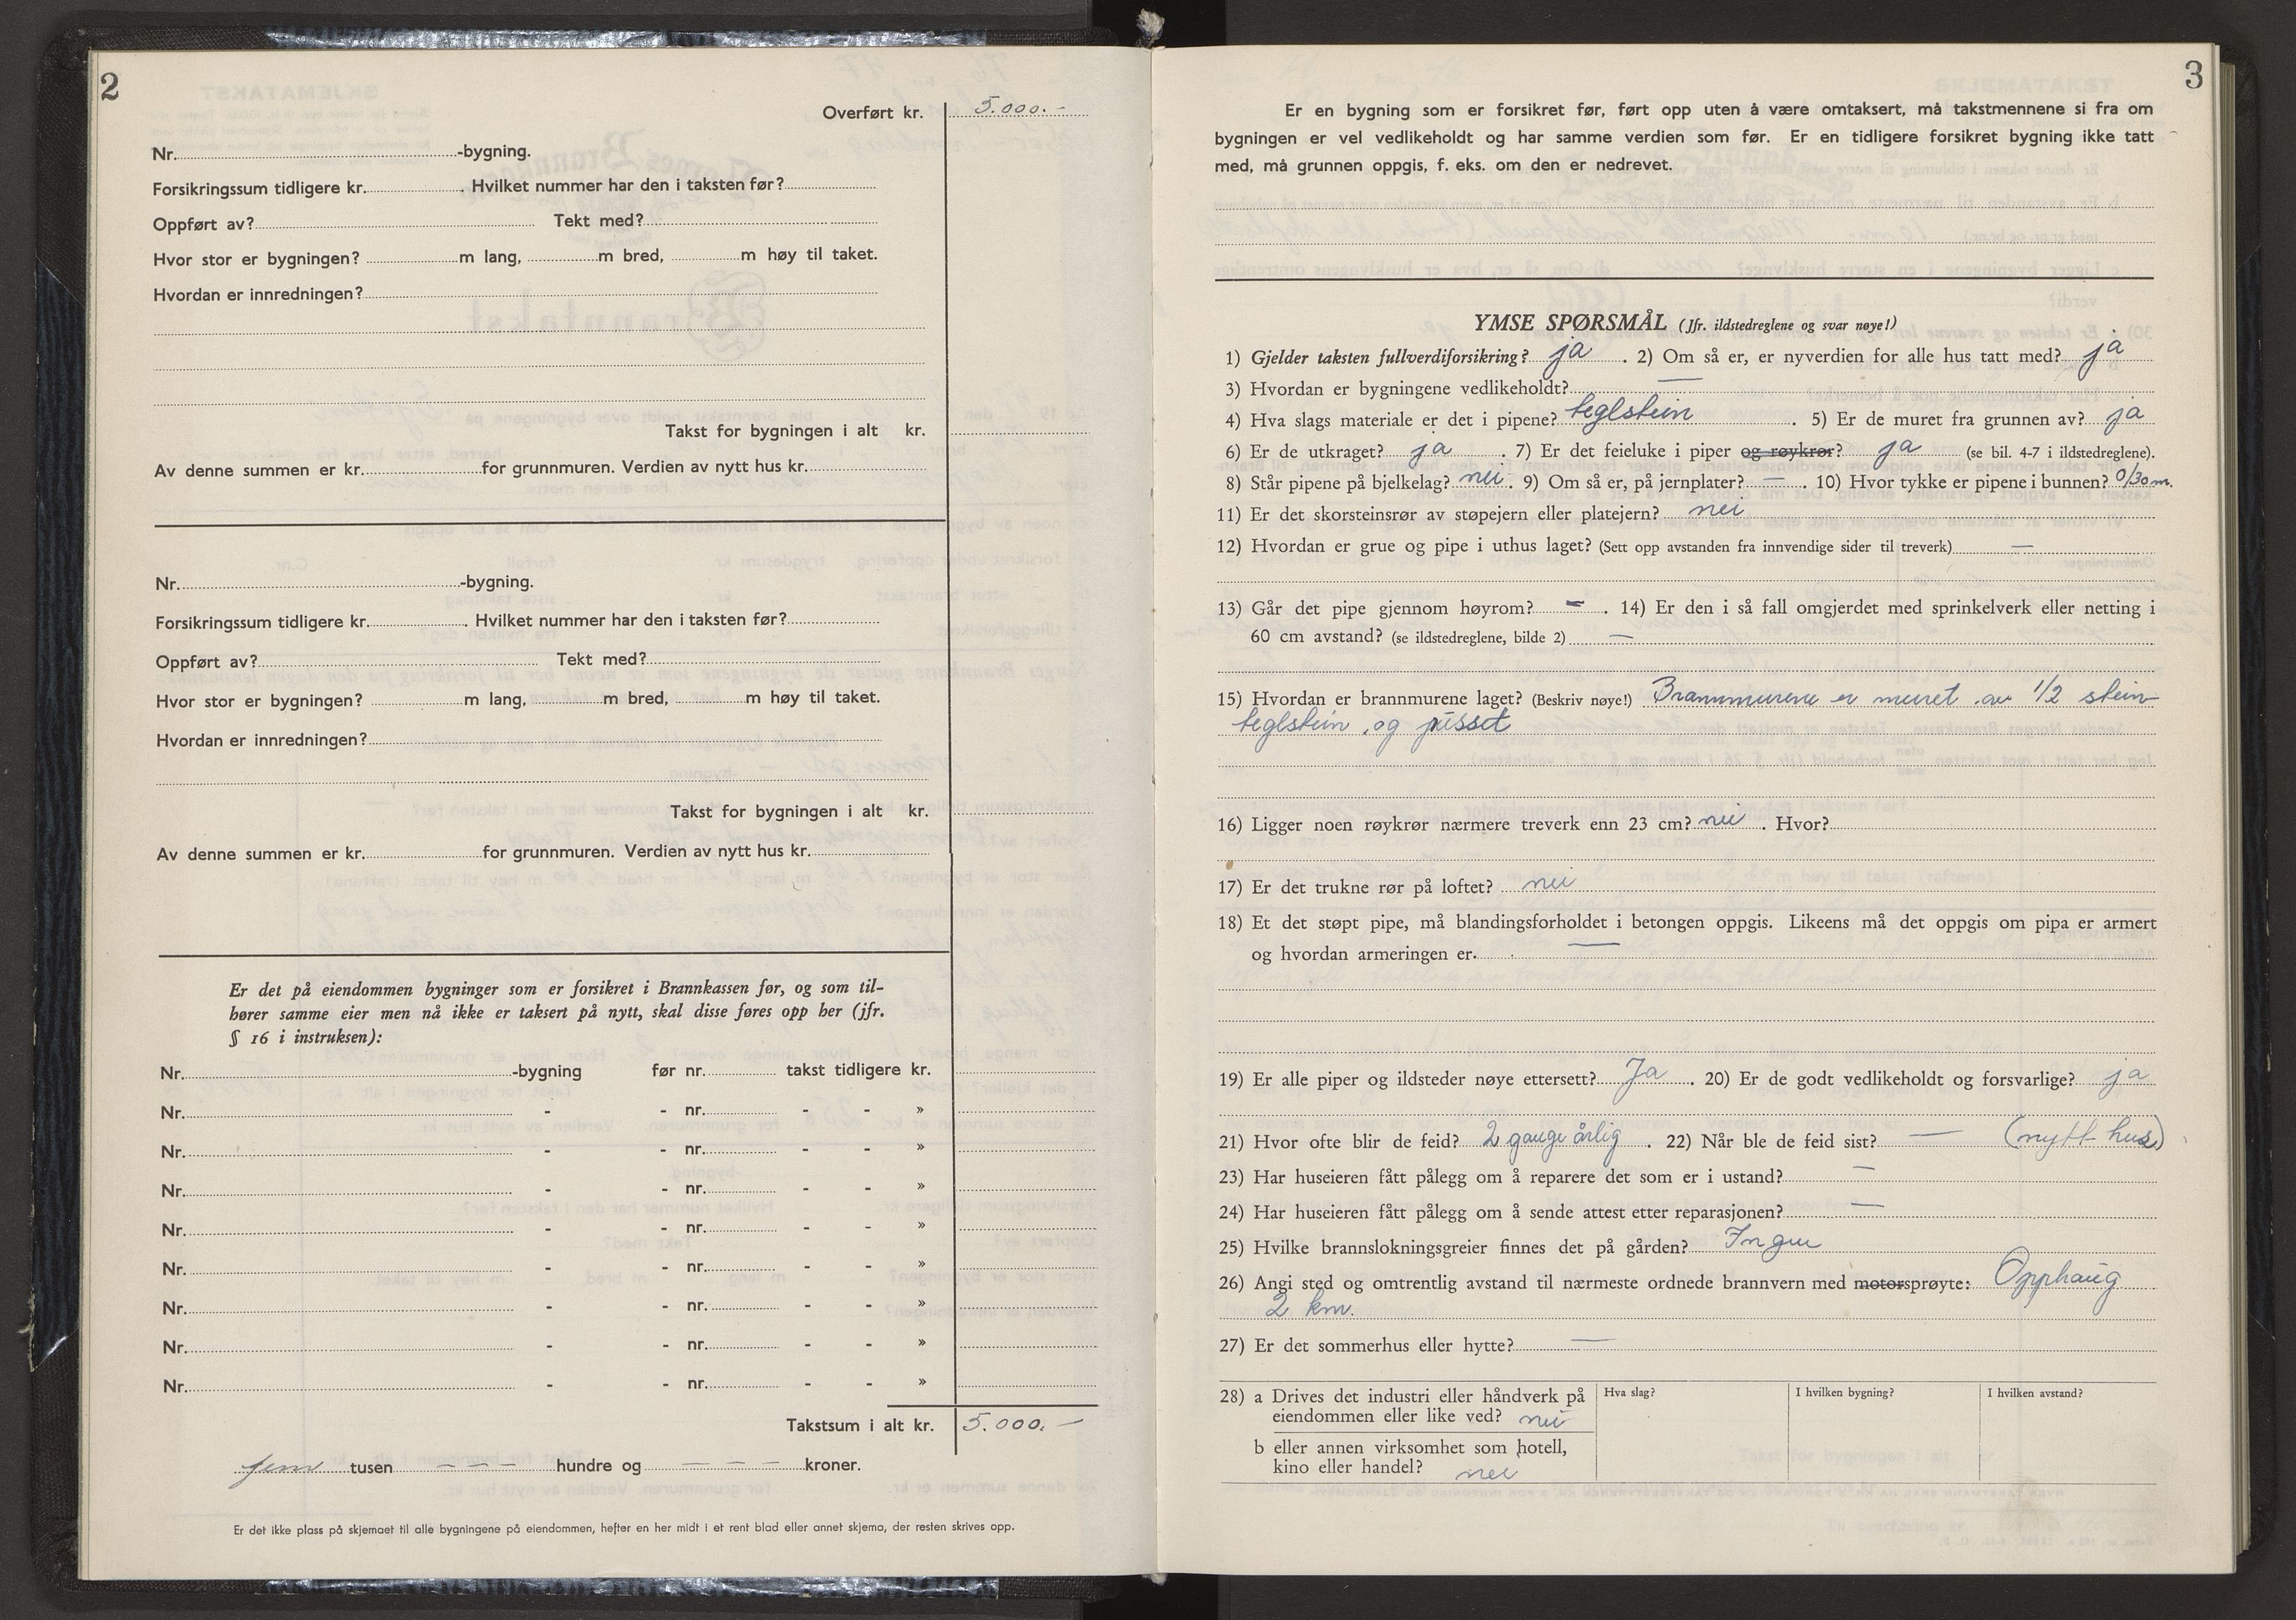 2
Overført kr. 5.000.-
Nr. -bygning.
Forsikringssum tidligere kr. . Hvilket nummer har den i taksten før?
Oppført av? Tekt med?
Hvor stor er bygningen? m lang, m bred, m høy til taket.
Hvordan er innredningen?
Takst for bygningen i alt kr.
Av denne summen er kr. for grunnmuren. Verdien av nytt hus kr.
Nr. -bygning.
Forsikringssum tidligere kr. . Hvilket nummer har den i taksten før?
Oppført av? Tekt med?
Hvor stor er bygningen? m lang, m bred, m høy til taket.
Hvordan er innredningen?
Takst for bygningen i alt kr.
Av denne summen er kr. for grunnmuren. Verdien av nytt hus kr.
Er det på eiendommen bygninger som er forsikret i Brannkassen før, og som til-
hører samme eier men nå ikke er taksert på nytt, skal disse føres opp her (jfr.
§ 16 i instruksen):
Nr. -bygning før nr. takst tidligere kr.
Nr. - - nr. - - »
Nr. - - nr. - - »
Nr. - - nr. - - »
Nr. - - nr. - - »
Nr. - - nr. - - »
Nr. - - nr. - - »
Nr. - - nr. - - »
Nr. - - nr. - - »
Takstsum i alt kr. 5.000.-
fem tusen - - - hundre og - - - kroner.
Er det ikke plass på skjemaet til alle bygningene på eiendommen, hefter en her midt i et rent blad eller annet skjema, der resten skrives opp.
3
Er en bygning som er forsikret før, ført opp uten å være omtaksert, må takstmennene si fra om
bygningen er vel vedlikeholdt og har samme verdien som før. Er en tidligere forsikret bygning ikke tatt
med, må grunnen oppgis, f. eks. om den er nedrevet.
YMSE SPØRSMÅL (Jfr. ildstedreglene og svar nøye!)
1) Gjelder taksten fullverdiforsikring? ja . 2) Om så er, er nyverdien for alle hus tatt med? ja
3) Hvordan er bygningene vedlikeholdt? —
4) Hva slags materiale er det i pipene? teglstein . 5) Er de muret fra grunnen av? ja
6) Er de utkraget? ja . 7) Er det feieluke i piper og røykrør? ja (se bil. 4-7 i ildstedreglene).
8) Står pipene på bjelkelag? nei . 9) Om så er, på jernplater? — . 10) Hvor tykke er pipene i bunnen? 0/30 m.
11) Er det skorsteinsrør av støpejern eller platejern? nei
12) Hvordan er grue og pipe i uthus laget? (Sett opp avstanden fra innvendige sider til treverk) —
13) Går det pipe gjennom høyrom? — . 14) Er den i så fall omgjerdet med sprinkelverk eller netting i
60 cm avstand? (se ildstedreglene, bilde 2) —
15) Hvordan er brannmurene laget? (Beskriv nøye!) Brannmurene er muret av 1/2 stein
teglstein og pusset
16) Ligger noen røykrør nærmere treverk enn 23 cm? nei . Hvor?
17) Er det trukne rør på loftet? nei
18) Et det støpt pipe, må blandingsforholdet i betongen oppgis. Likeens må det oppgis om pipa er armert
og hvordan armeringen er. —
19) Er alle piper og ildsteder nøye ettersett? Ja . 20) Er de godt vedlikeholdt og forsvarlige? ja
21) Hvor ofte blir de feid? 2 gange årlig . 22) Når ble de feid sist? — (nytt hus)
23) Har huseieren fått pålegg om å reparere det som er i ustand? —
24) Har huseieren fått pålegg om å sende attest etter reparasjonen? —
25) Hvilke brannslokningsgreier finnes det på gården? Ingen
26) Angi sted og omtrentlig avstand til nærmeste ordnede brannvern med motorsprøyte: Opphaug
2 km.
27) Er det sommerhus eller hytte? —
28) a Drives det industri eller håndverk på Hva slag? I hvilken bygning? I hvilken avstand?
eiendommen eller like ved? nei
b eller annen virksomhet som hotell,
kino eller handel? nei